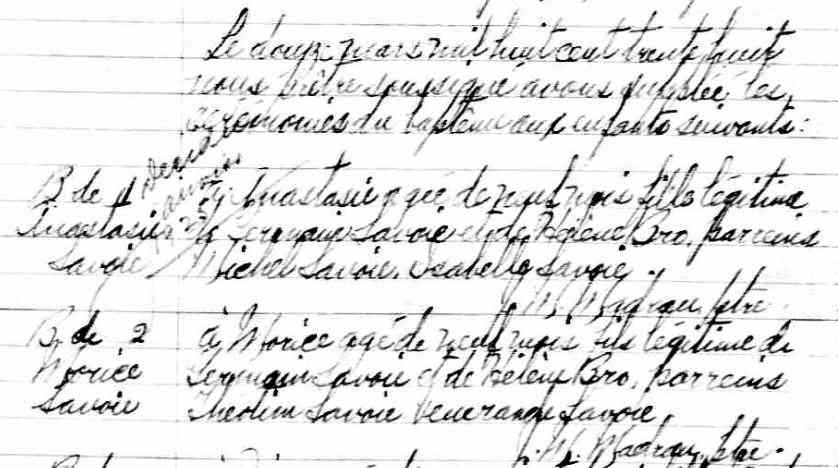 Le douze mars mil huit cent trente huit
nous prêtre soussigné avons suppléé les
cérémonies du baptême aux enfants suivants:
B. de 1
Anastasie
Savoie
à Anastasie agée de neuf mois fille légitime
de Germain Savoie et de Hélène Bro, parreins
Michel Savoie, Isabelle Savoie.
Madran, ptre.
B. de 2
Morice
Savoie
à Morice agé de neuf mois fils légitime de
Germain Savoie et de Hélène Bro, parreins
Savoie Savoie.
Madran, ptre.